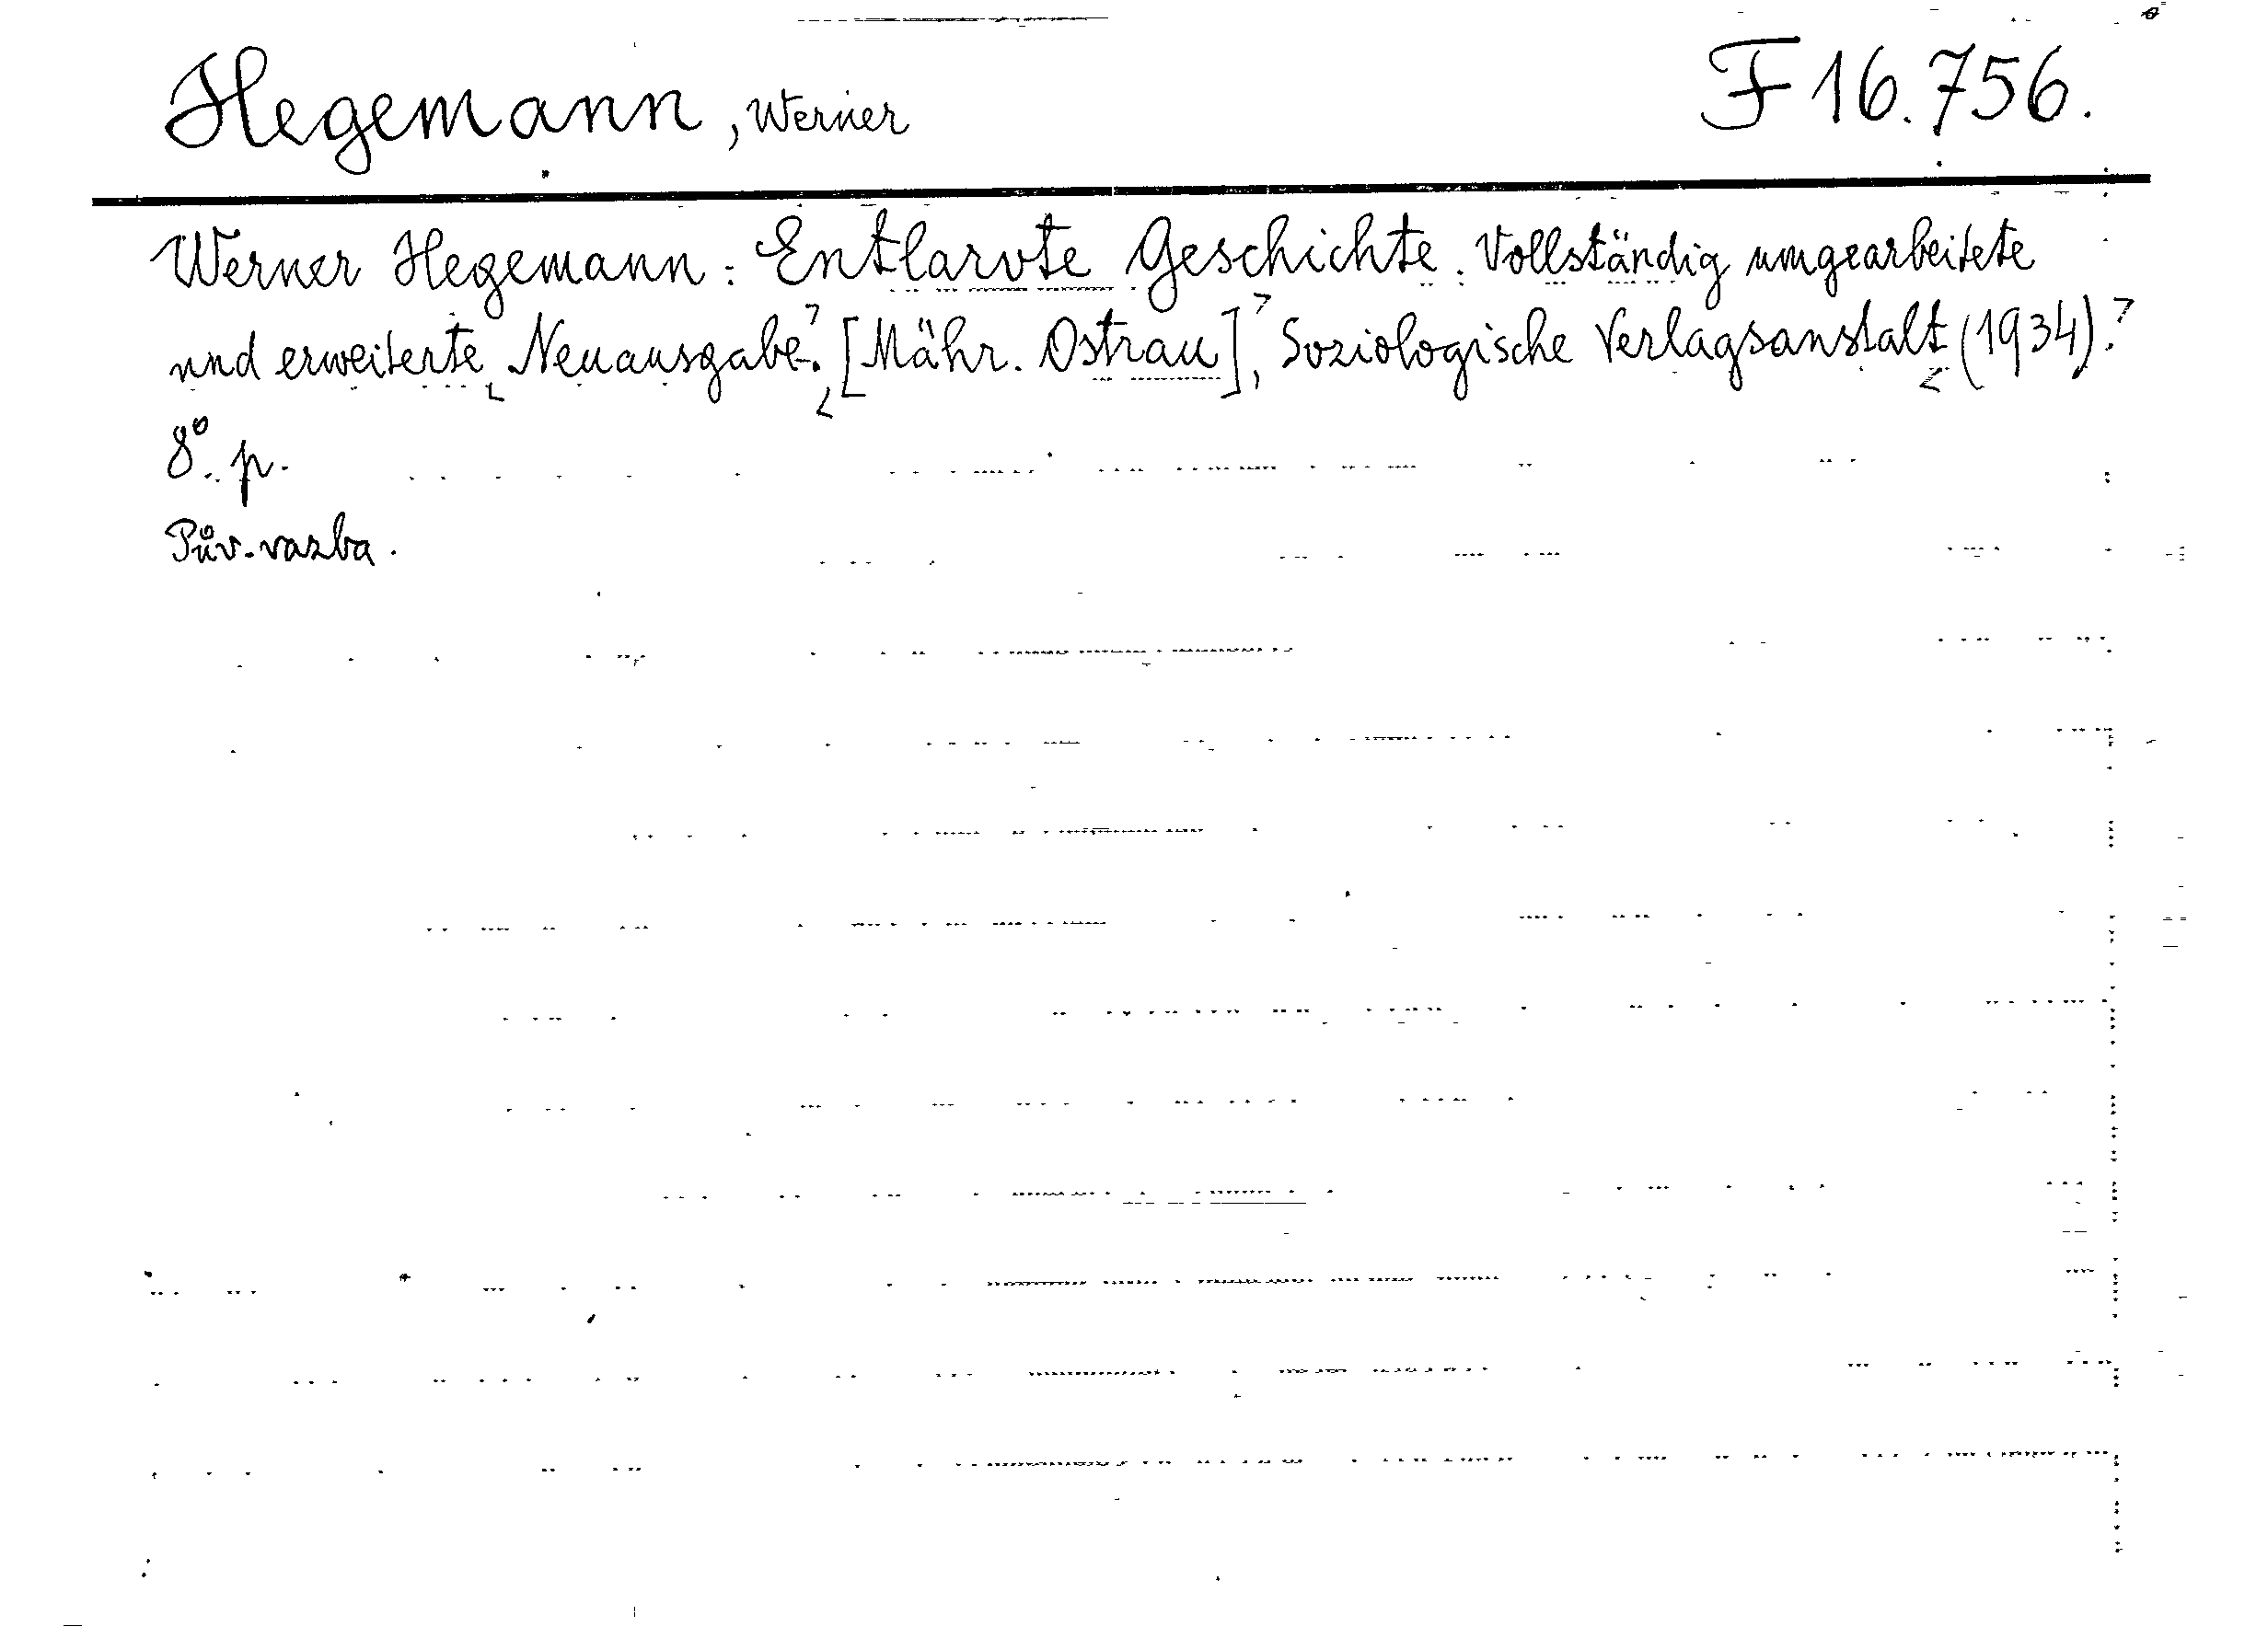 Hegemann, Werner F 16.756.
Werner Hegemann: Entlarvte Geschichte. Vollständig umgearbeitete
und erweiterte Neuausgabe. [Mähr. Ostrau], Soziologische Verlagsanstalt (1934).
8°. p.
Pův. vazba.